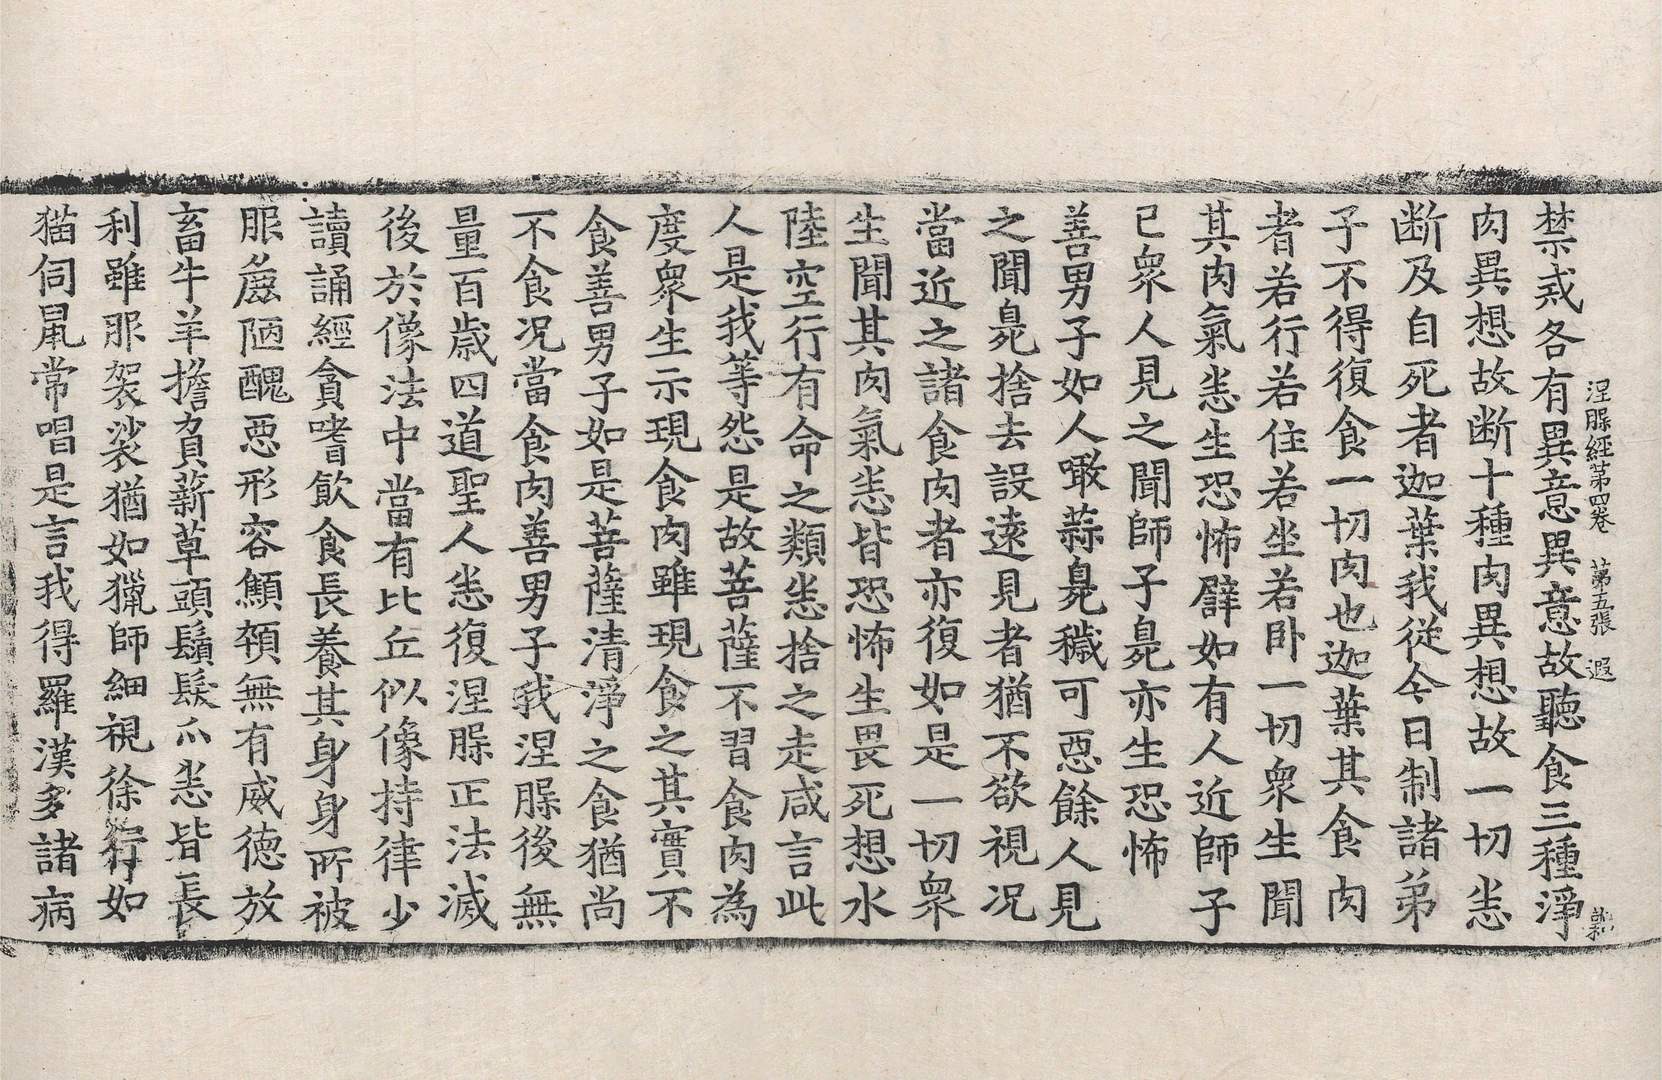 涅槃經第四卷　第五張　遐
禁戒各有異意異意故聽食三種淨
肉異想故断十種肉異想故一切悉
断及自死者迦葉我従今日制諸弟
子不得復食一切肉也迦葉其食肉
者若行若住若坐若卧一切衆生聞
其肉氣悉生恐怖譬如有人近師子
已衆人見之聞師子臭亦生恐怖
善男子如人噉蒜臭穢可惡餘人見
之聞臭捨去設遠見者猶不欲視况
當近之諸食肉者亦復如是一切衆
生聞其肉氣悉皆恐怖生畏死想水
陸空行有命之類悉捨之走咸言此
人是我等怨是故菩薩不習食肉為
度衆生示現食肉雖現食之其實不
食善男子如是菩薩清淨之食猶尚
不食况當食肉善男子我涅槃後無
量百歲四道聖人悉復涅槃正法滅
後於像法中當有比丘似像持律少
讀誦經貪嗜飲食長養其身身所被
服麁陋醜惡形容顦顇無有威德放
畜牛羊擔負薪草頭鬚髮爪悉皆長
利雖服袈裟猶如獵師細視徐行如
猫伺鼠常唱是言我得羅漢多諸病